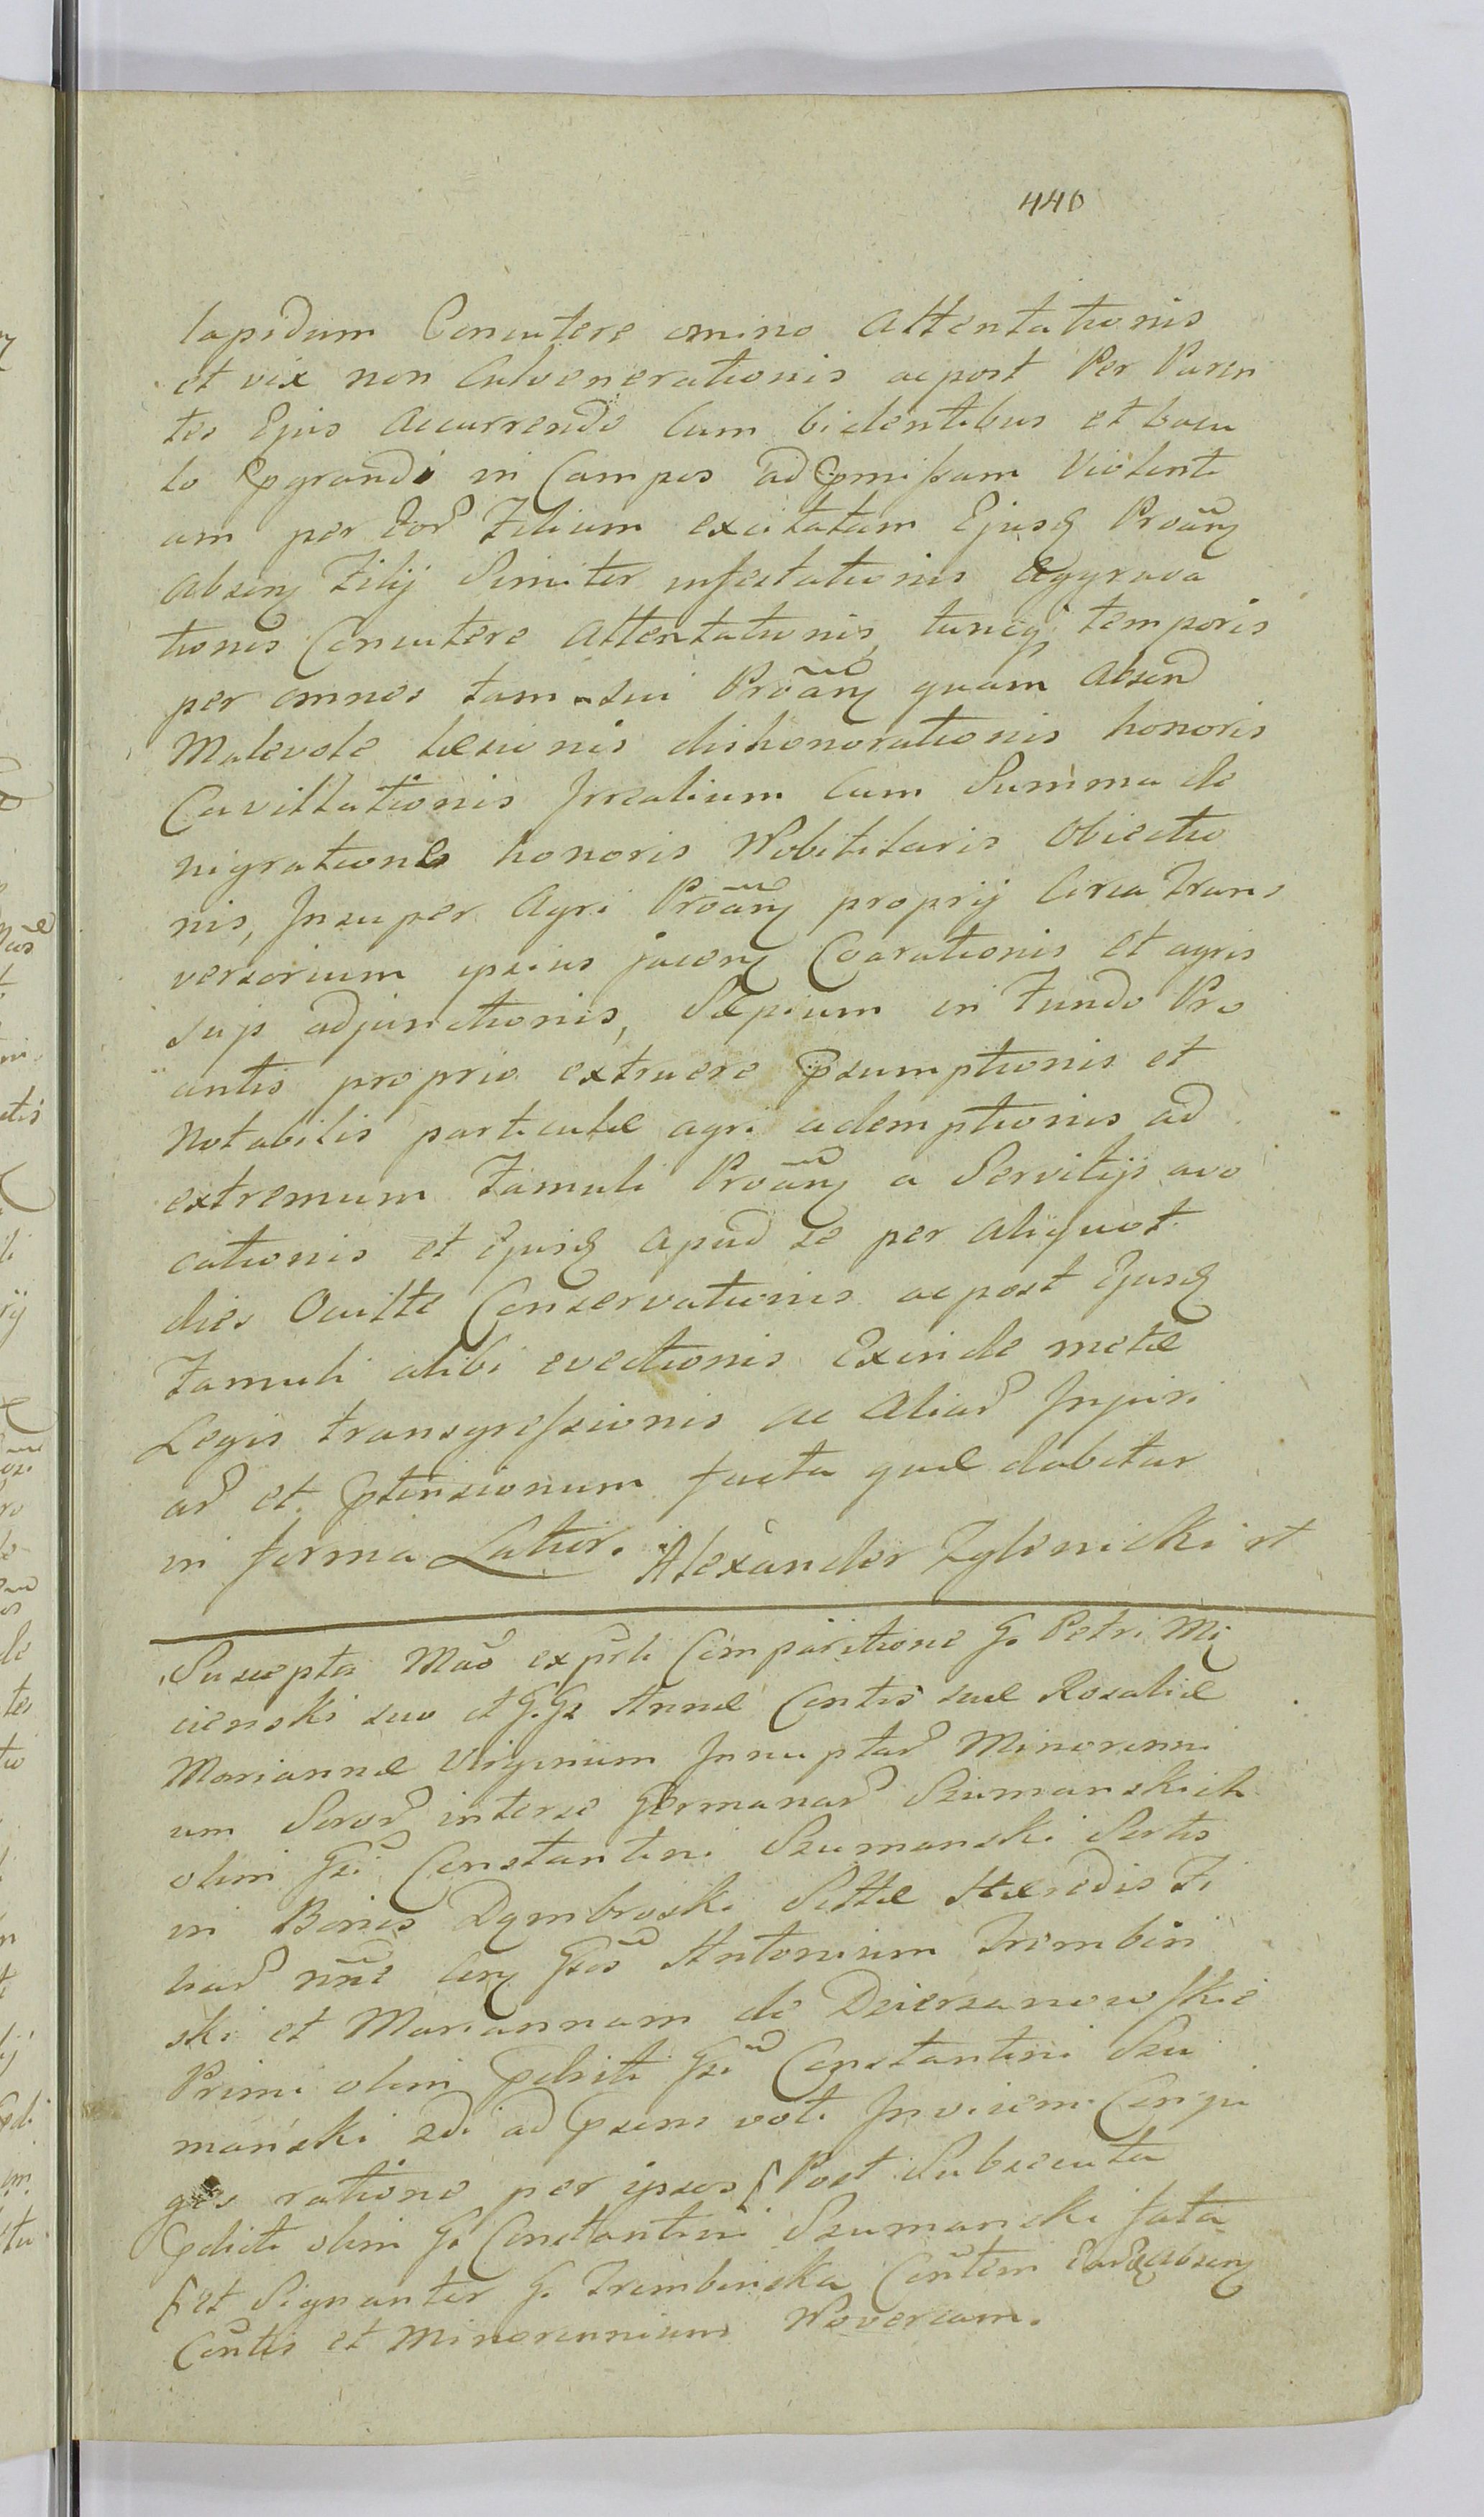 440
lapidum Concutere omino Attentationis
et vix non Culvenerationis acpost Per Paren
tes Ejus Accurrendo Cum bidentibus et bacu
lo pgrandi in Campos ad pmissam Violenti
am per Eor Filium excitatam Ejusq Proãn
Absen Filij Simiter infestationis Aggrava
tionis Concutere Attentationis, tuncq temporis
per omnes tam sui Proãn quam Absen
Malevole læsionis dishonorationis honoris
Cavillationis Irrealium Cum Summa de
nigratione honoris Nobilitaris Obiectio
nis, Insuper Agri Proãn proprij Circa Trans
versorium ipsius jacen Coarationis et agris
suis adjunctionis, Sæpium in Fundo Pro
antis proprio extruere psumptionis et
Notabilis particulæ agri ademptionis ad
extremum Famuli Proãn a Servitijs avo
cationis et Ejusq apud se per aliquot
dies Occulte Conservationis acpost Ejusq
Famuli alibi evectionis Exinde metæ
Legis transgressionis ac Aliar Injuri
ar et ptensionum facta quæ dabitur
in forma Latior. Alexander Zglenicki rt
Suscepta Mao exprli Comparitione G. Petri Mi
cienski suo et G.G. Annæ Contis suæ Rosaliæ
Mariannæ Virginum Innuptar Minorenni
um Soror interse Germanar Szumanskich
olim Gsi Constantini Szumanski Sortis
in Bonis Dąmbroski Sittæ Hæredis Fi
liar nne Con Gsos Antonium Trembin
ski et Mariannam de Dzierzanowskie
Primi olim pdicti Gsi Constantini Szu
manski 2di ad psens voti Invicem Conju
ges ratione per ipsos [Post Subsecuta
pdicti olim G. Constantini Szumanski fata
[et Signanter G. Trembinska Contem Absen
Contis et Minorennium Novercam.